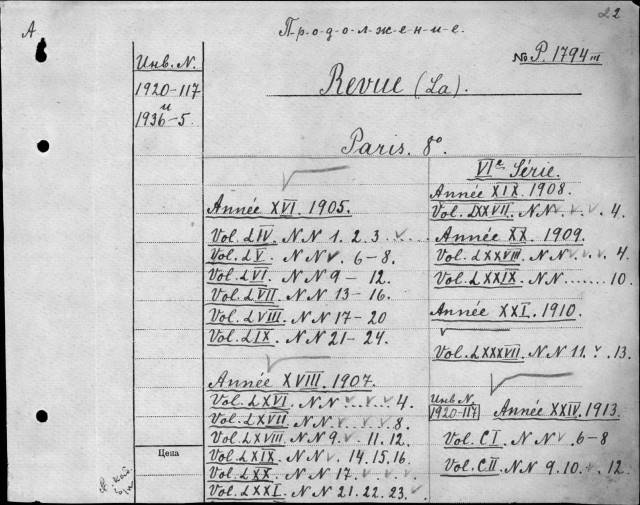 22
А
П-р-о-д-о-л-ж-е-н-и-е.
Инв. N.
1920-117
и
1936-5.
No P. 1794 III
Revue (La).
Paris. 8o.
Année XVI. 1905.
Vol. LIV. NN 1. 2. 3 v
Vol. LV. NN v. 6-8.
Vol. LVI. NN 9 - 12.
Vol. LVII. NN 13 - 16.
Vol. LVIII. NN 17 - 20
Vol. LIX. NN 21 - 24.
Année XVIII. 1907.
Vol. LXVI. NN v v v 4.
Vol. LXVII. NN v v v 8.
Vol. LXVIII. NN 9. v. 11. 12.
Vol. LXIX. NN v. 14. 15. 16.
Vol. LXX. NN 17. v v v
Vol. LXXI. NN 21. 22. 23. v
VIe Série.
Année XIX. 1908.
Vol. LXXVII. NN v v v 4.
Année XX. 1909.
Vol. LXXVIII. NN v v v 4.
Vol. LXXIX. NN ....... 10.
Année XXI. 1910.
Vol. LXXXVII. NN 11. v. 13.
Инв. N.
1920-117
Année XXIV. 1913.
Vol. CI. NN v. 6-8
Vol. CII. NN 9. 10. v 12.
Цена